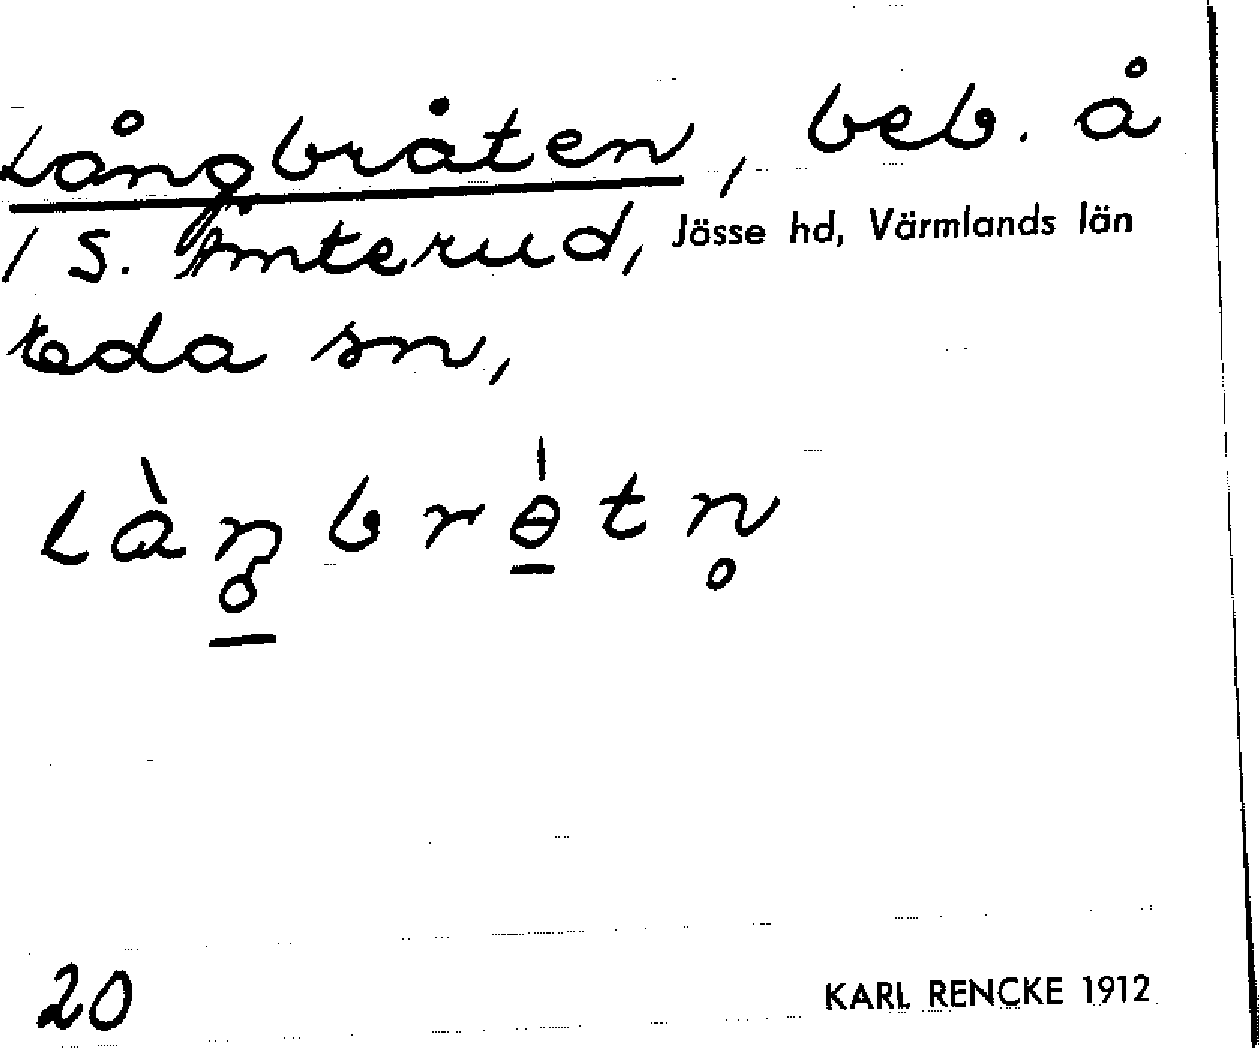 Långbråten, beb. å
/ S. Ämterud, Jösse hd, Värmlands län
Eda sn,
Làŋbrɵ́tn̥
20
KARL RENCKE 1912